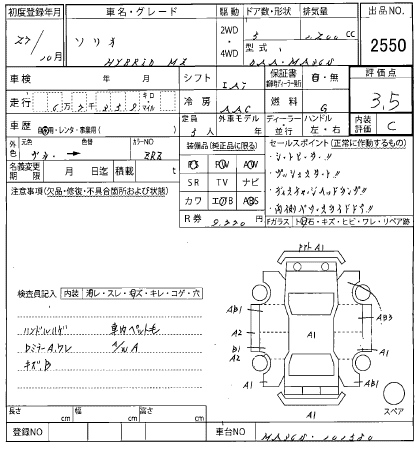 初度登録年月 車名・グレード 駆動 ドア数・形状 排気量 出品NO.
27年 10月 ソリオ HYBRID MZ 2WD・4WD 5 1,200 cc 2550
型式 DAA-MA36S
車検 年 月 シフト IAT 保証書 有・無 評価点 3.5
走行 キロ マイル 冷房 AAC 燃料 G
車歴 自家用・レンタ・事業用( ) 定員 5人 外車モデル 年 ディーラー・並行 ハンドル 左・右 内装評価 C
外色 元色 色替 カラーNO ZRZ
名義変更期限 月 日迄 積載 t
装備品(純正品に限る)
PS PW AW
SR TV ナビ
カワ エアB ABS
R券 円
セールスポイント(正常に作動するもの)
シートヒーター!!
プッシュスタート!!
ディスチャージヘッドランプ!!
両側パワースライドドア!!
Fガラス トビ石・キズ・ヒビ・ワレ・リペア跡
注意事項(欠品・修復・不具合箇所および状態)
検査員記入 内装 汚レ・スレ・キズ・キレ・コゲ・穴
ハンドルハゲ
キズB
A1
AB1
A2
B1
A2
A1
A1
AB3
A1
AB1
A1
スペア
長さ cm 幅 cm 高さ cm
登録NO 車台NO MA36S-